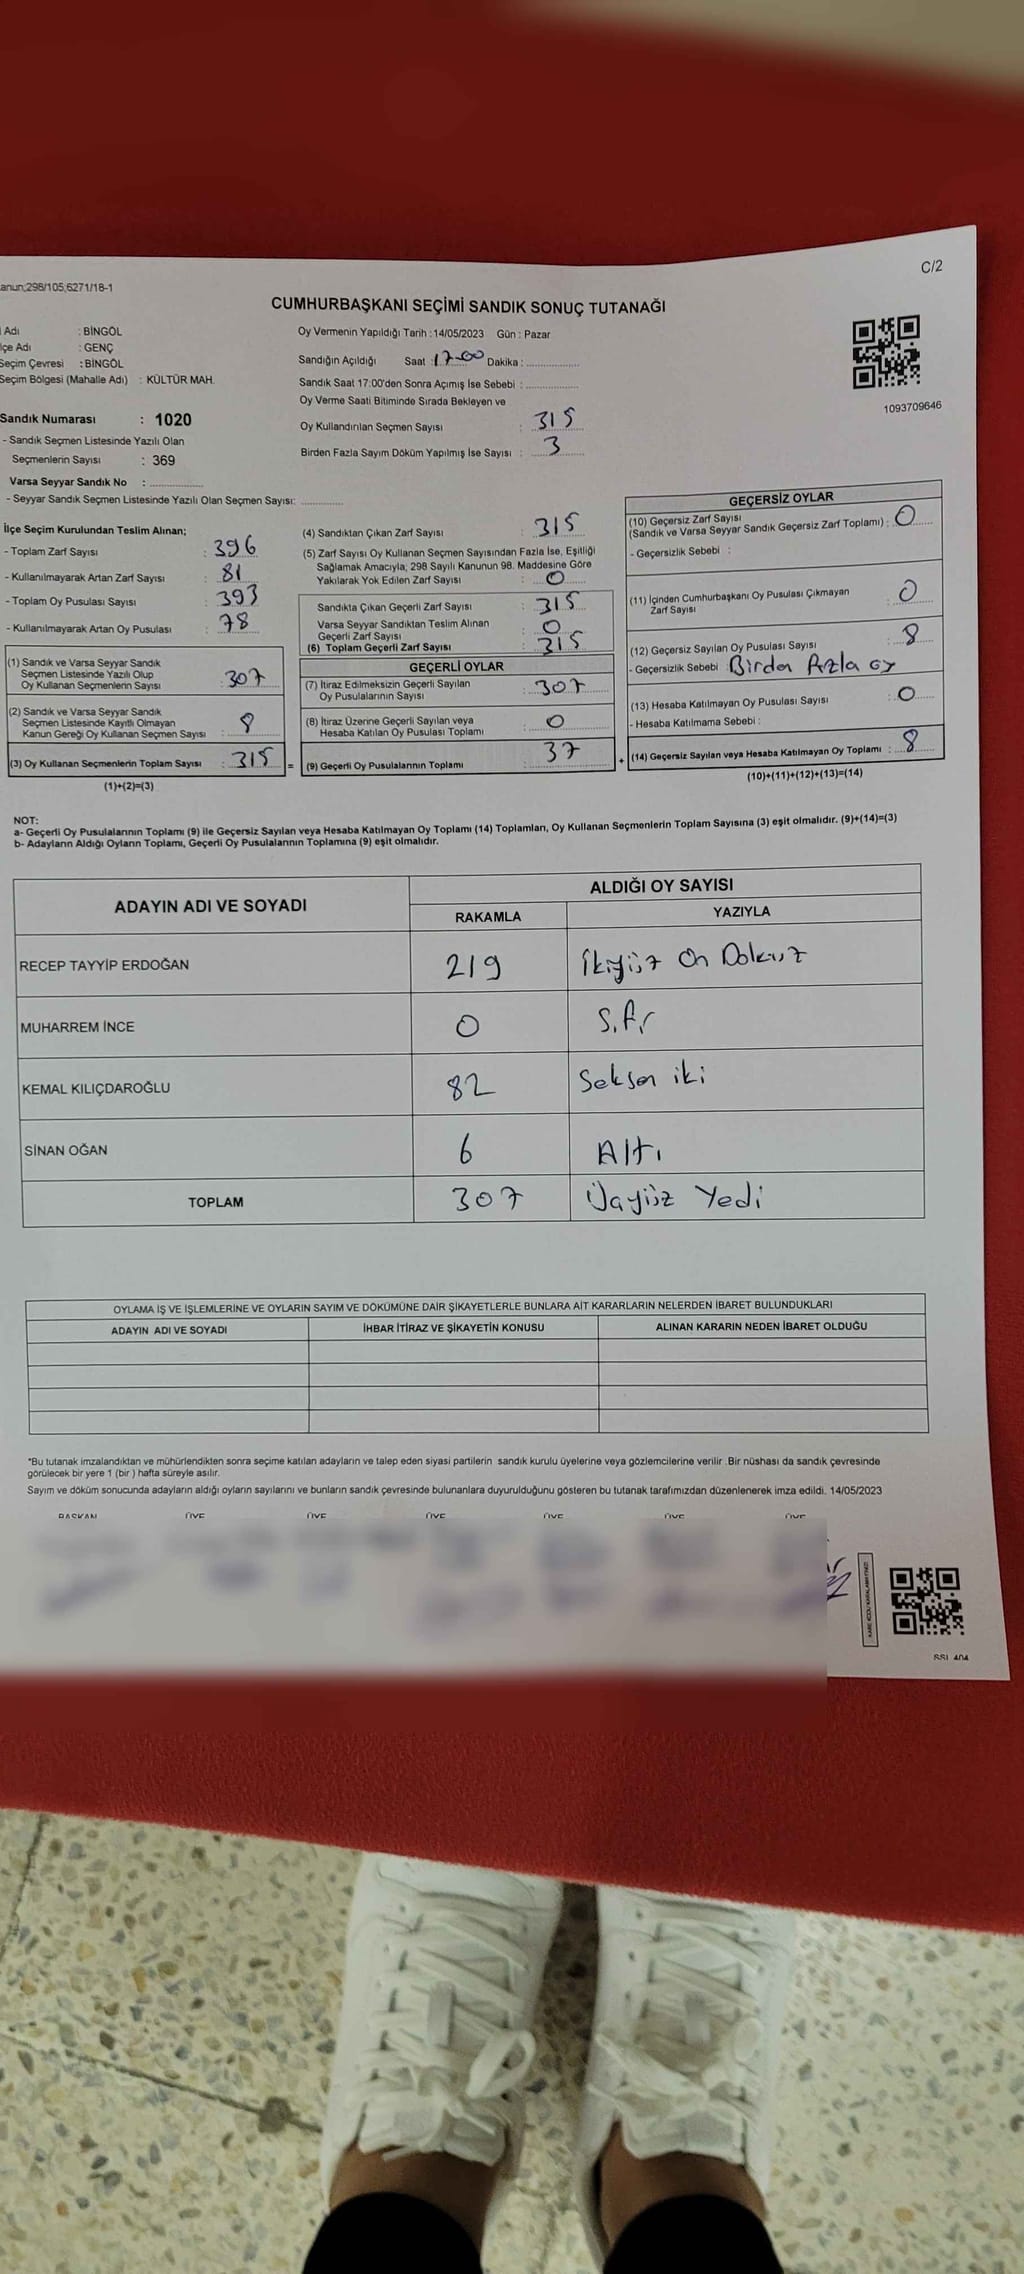 C/2
anun;298/105,6271/18-1
CUMHURBAŞKANI SEÇİMİ SANDIK SONUÇ TUTANAĞI
Adı : BİNGÖL
çe Adı : GENÇ
Seçim Çevresi : BİNGÖL
Seçim Bölgesi (Mahalle Adı) : KÜLTÜR MAH.
Oy Vermenin Yapıldığı Tarih : 14/05/2023 Gün : Pazar
Sandığın Açıldığı Saat : 17-00 Dakika :
Sandık Saat 17:00'den Sonra Açımış İse Sebebi :
Oy Verme Saati Bitiminde Sırada Bekleyen ve
Oy Kullandırılan Seçmen Sayısı : 315
Birden Fazla Sayım Döküm Yapılmış İse Sayısı : 3
1093709646
Sandık Numarası : 1020
- Sandık Seçmen Listesinde Yazılı Olan
Seçmenlerin Sayısı : 369
Varsa Seyyar Sandık No :
- Seyyar Sandık Seçmen Listesinde Yazılı Olan Seçmen Sayısı:
İlçe Seçim Kurulundan Teslim Alınan;
- Toplam Zarf Sayısı : 396
- Kullanılmayarak Artan Zarf Sayısı : 81
- Toplam Oy Pusulası Sayısı : 393
- Kullanılmayarak Artan Oy Pusulası : 78
(1) Sandık ve Varsa Seyyar Sandık
Seçmen Listesinde Yazılı Olup
Oy Kullanan Seçmenlerin Sayısı : 307
(2) Sandık ve Varsa Seyyar Sandık
Seçmen Listesinde Kayıtlı Olmayan
Kanun Gereği Oy Kullanan Seçmen Sayısı : 8
(3) Oy Kullanan Seçmenlerin Toplam Sayısı : 315
(1)+(2)=(3)
(4) Sandıktan Çıkan Zarf Sayısı : 315
(5) Zarf Sayısı Oy Kullanan Seçmen Sayısından Fazla İse, Eşitliği
Sağlamak Amacıyla; 298 Sayılı Kanunun 98. Maddesine Göre
Yakılarak Yok Edilen Zarf Sayısı : 0
Sandıkta Çıkan Geçerli Zarf Sayısı : 315
Varsa Seyyar Sandıktan Teslim Alınan
Geçerli Zarf Sayısı : 0
(6) Toplam Geçerli Zarf Sayısı : 315
GEÇERLİ OYLAR
(7) İtiraz Edilmeksizin Geçerli Sayılan
Oy Pusulalarının Sayısı : 307
(8) İtiraz Üzerine Geçerli Sayılan veya
Hesaba Katılan Oy Pusulası Toplamı : 0
= (9) Geçerli Oy Pusulalarının Toplamı : 37
GEÇERSİZ OYLAR
(10) Geçersiz Zarf Sayısı
(Sandık ve Varsa Seyyar Sandık Geçersiz Zarf Toplamı) : 0
- Geçersizlik Sebebi :
(11) İçinden Cumhurbaşkanı Oy Pusulası Çıkmayan
Zarf Sayısı : 0
(12) Geçersiz Sayılan Oy Pusulası Sayısı : 8
- Geçersizlik Sebebi : Birden Fazla oy
(13) Hesaba Katılmayan Oy Pusulası Sayısı : 0
- Hesaba Katılmama Sebebi :
+ (14) Geçersiz Sayılan veya Hesaba Katılmayan Oy Toplamı : 8
(10)+(11)+(12)+(13)=(14)
NOT:
a- Geçerli Oy Pusulalarının Toplamı (9) ile Geçersiz Sayılan veya Hesaba Katılmayan Oy Toplamı (14) Toplamları, Oy Kullanan Seçmenlerin Toplam Sayısına (3) eşit olmalıdır. (9)+(14)=(3)
b- Adayların Aldığı Oyların Toplamı, Geçerli Oy Pusulalarının Toplamına (9) eşit olmalıdır.
ADAYIN ADI VE SOYADI ALDIĞI OY SAYISI
RAKAMLA YAZIYLA
RECEP TAYYİP ERDOĞAN 219 İkiyüz On Dokuz
MUHARREM İNCE 0 Sıfır
KEMAL KILIÇDAROĞLU 82 Seksen iki
SİNAN OĞAN 6 Altı
TOPLAM 307 Üçyüz Yedi
OYLAMA İŞ VE İŞLEMLERİNE VE OYLARIN SAYIM VE DÖKÜMÜNE DAİR ŞİKAYETLERLE BUNLARA AİT KARARLARIN NELERDEN İBARET BULUNDUKLARI
ADAYIN ADI VE SOYADI İHBAR İTİRAZ VE ŞİKAYETİN KONUSU ALINAN KARARIN NEDEN İBARET OLDUĞU
*Bu tutanak imzalandıktan ve mühürlendikten sonra seçime katılan adayların ve talep eden siyasi partilerin sandık kurulu üyelerine veya gözlemcilerine verilir .Bir nüshası da sandık çevresinde
görülecek bir yere 1 (bir ) hafta süreyle asılır.
Sayım ve döküm sonucunda adayların aldığı oyların sayılarını ve bunların sandık çevresinde bulunanlara duyurulduğunu gösteren bu tutanak tarafımızdan düzenlenerek imza edildi. 14/05/2023
BAŞKAN ÜYE ÜYE ÜYE ÜYE ÜYE ÜYE